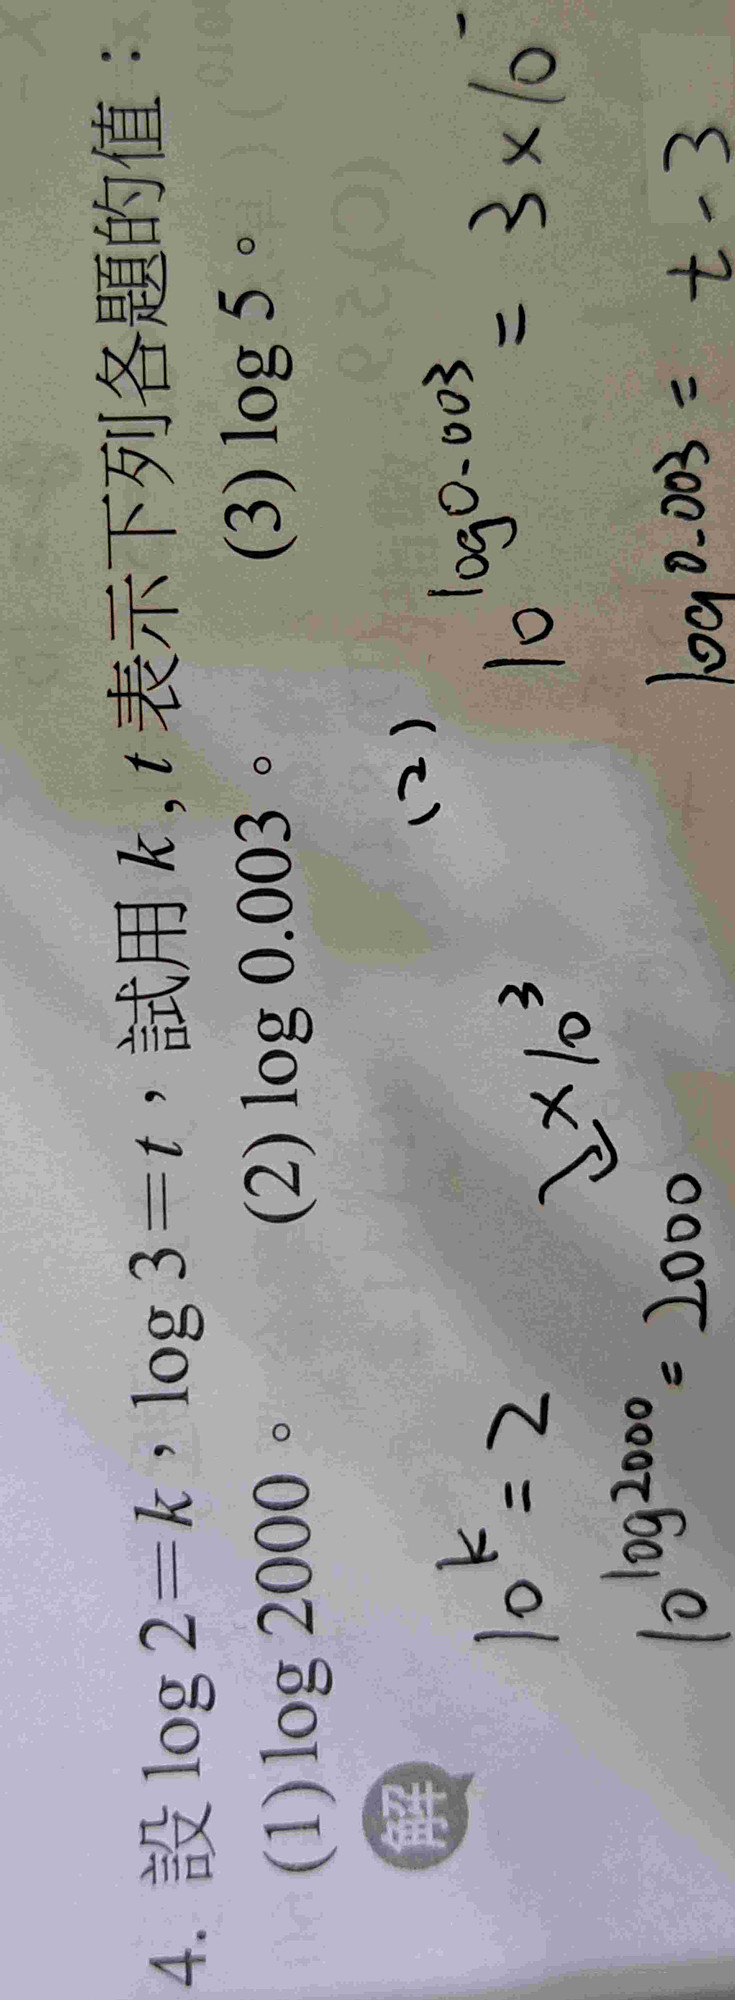 4. 設 log 2=k，log 3=t，試用 k , t 表示下列各題的值：
(1) log 2000。 (2) log 0.003。 (3) log 5。
解
10^k = 2
↓ × 10^3
10^log2000 = 2000
(2)
10^log0.003 = 3 × 10^-
log 0.003 = t - 3